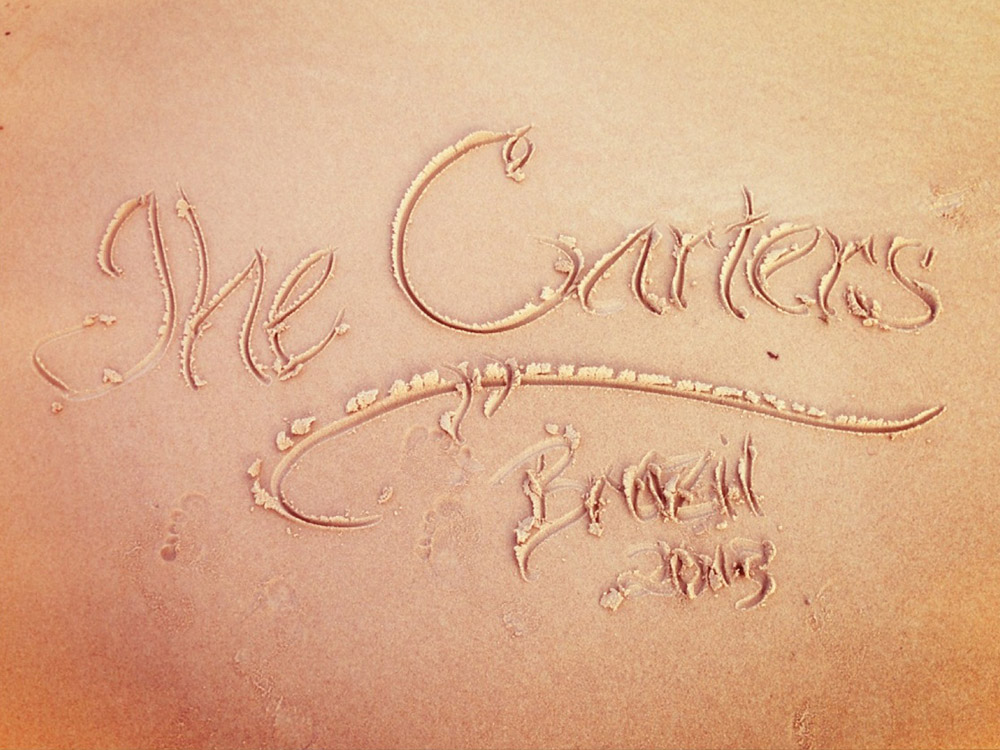 The Carters
Brazil
2013